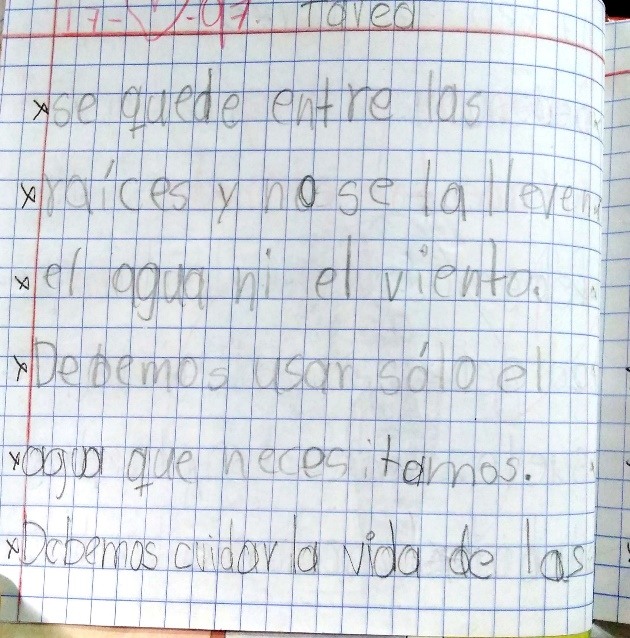 17-V-97. Tarea
x se quede entre las
x raíces y no se la lleven
x el agua ni el viento.
x Debemos usar sólo el
x agua que necesitamos.
x Debemos cuidar la vida de las